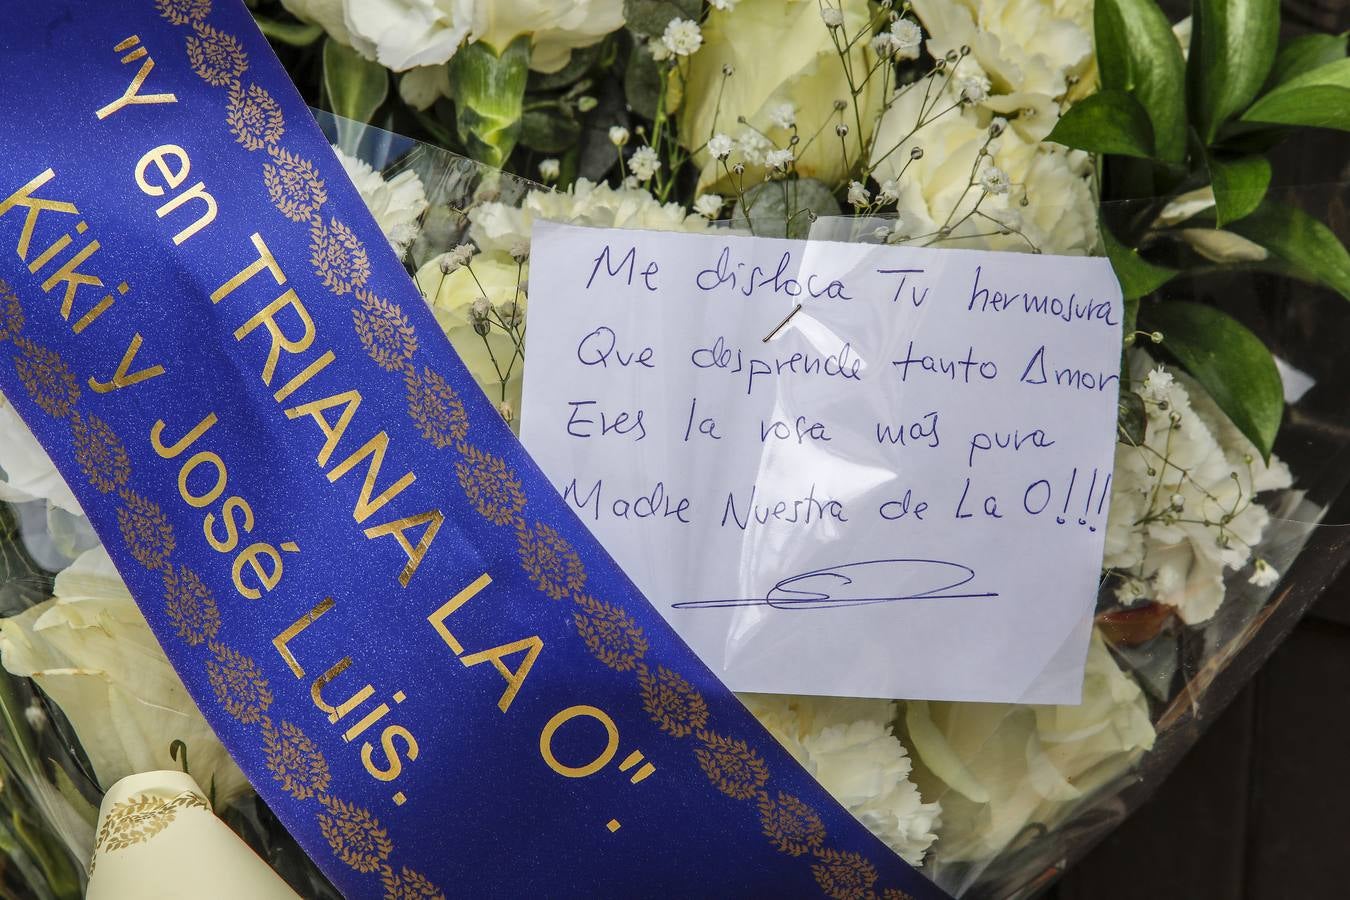 "Y en TRIANA LA O".
Kiki y José Luis.
Me disloca Tu hermosura
Que desprende tanto Amor
Eres la rosa más pura
Madre Nuestra de La O!!!